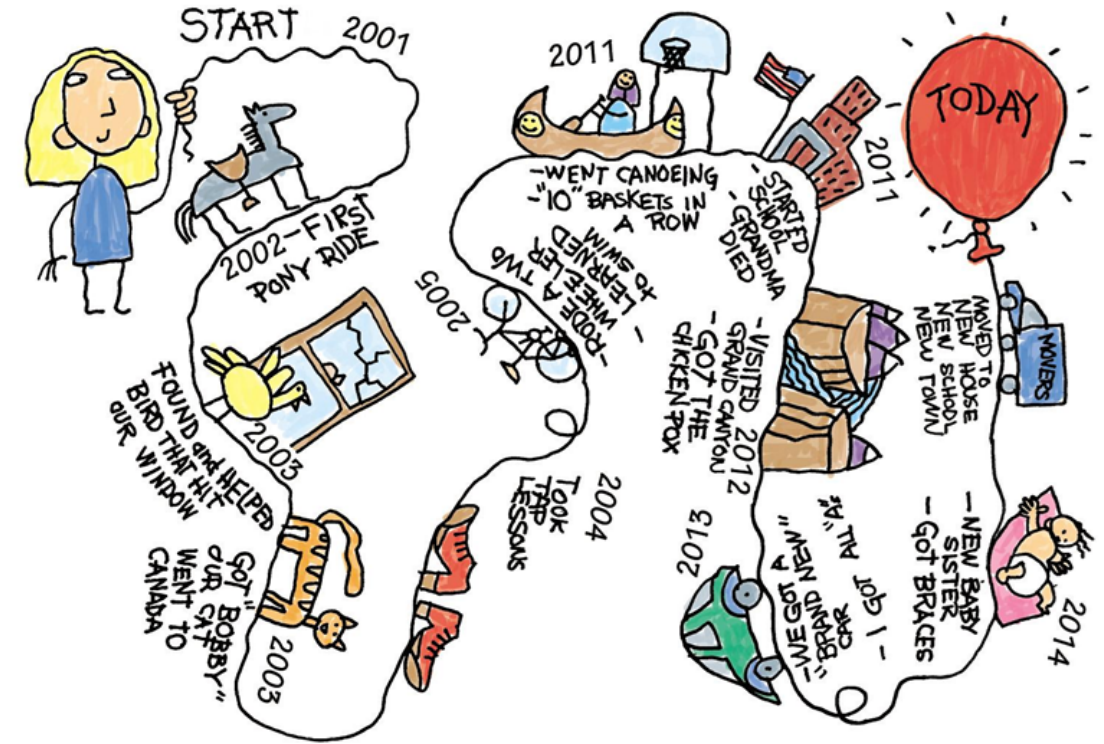 START 2001
2002-FIRST
PONY RIDE
FOUND and HELPED
BIRD THAT HIT
OUR WINDOW
2003
GOT "BOBBY"
OUR CAT
WENT TO
CANADA
2003
2004
TOOK
TAP
LESSONS
2005
-RODE A TWO
WHEELER
- LEARNED
TO SWIM
2011
-WENT CANOEING
-"10" BASKETS IN
A ROW
2011
-STARTED
SCHOOL
-GRANDMA
DIED
-VISITED 2012
GRAND CANYON
-GOT THE
CHICKEN POX
2013
-WE GOT A
"BRAND NEW"
CAR
- I GOT ALL "A"S
2014
-NEW BABY
SISTER
-GOT BRACES
MOVERS
MOVED TO
NEW HOUSE
NEW SCHOOL
NEW TOWN
TODAY